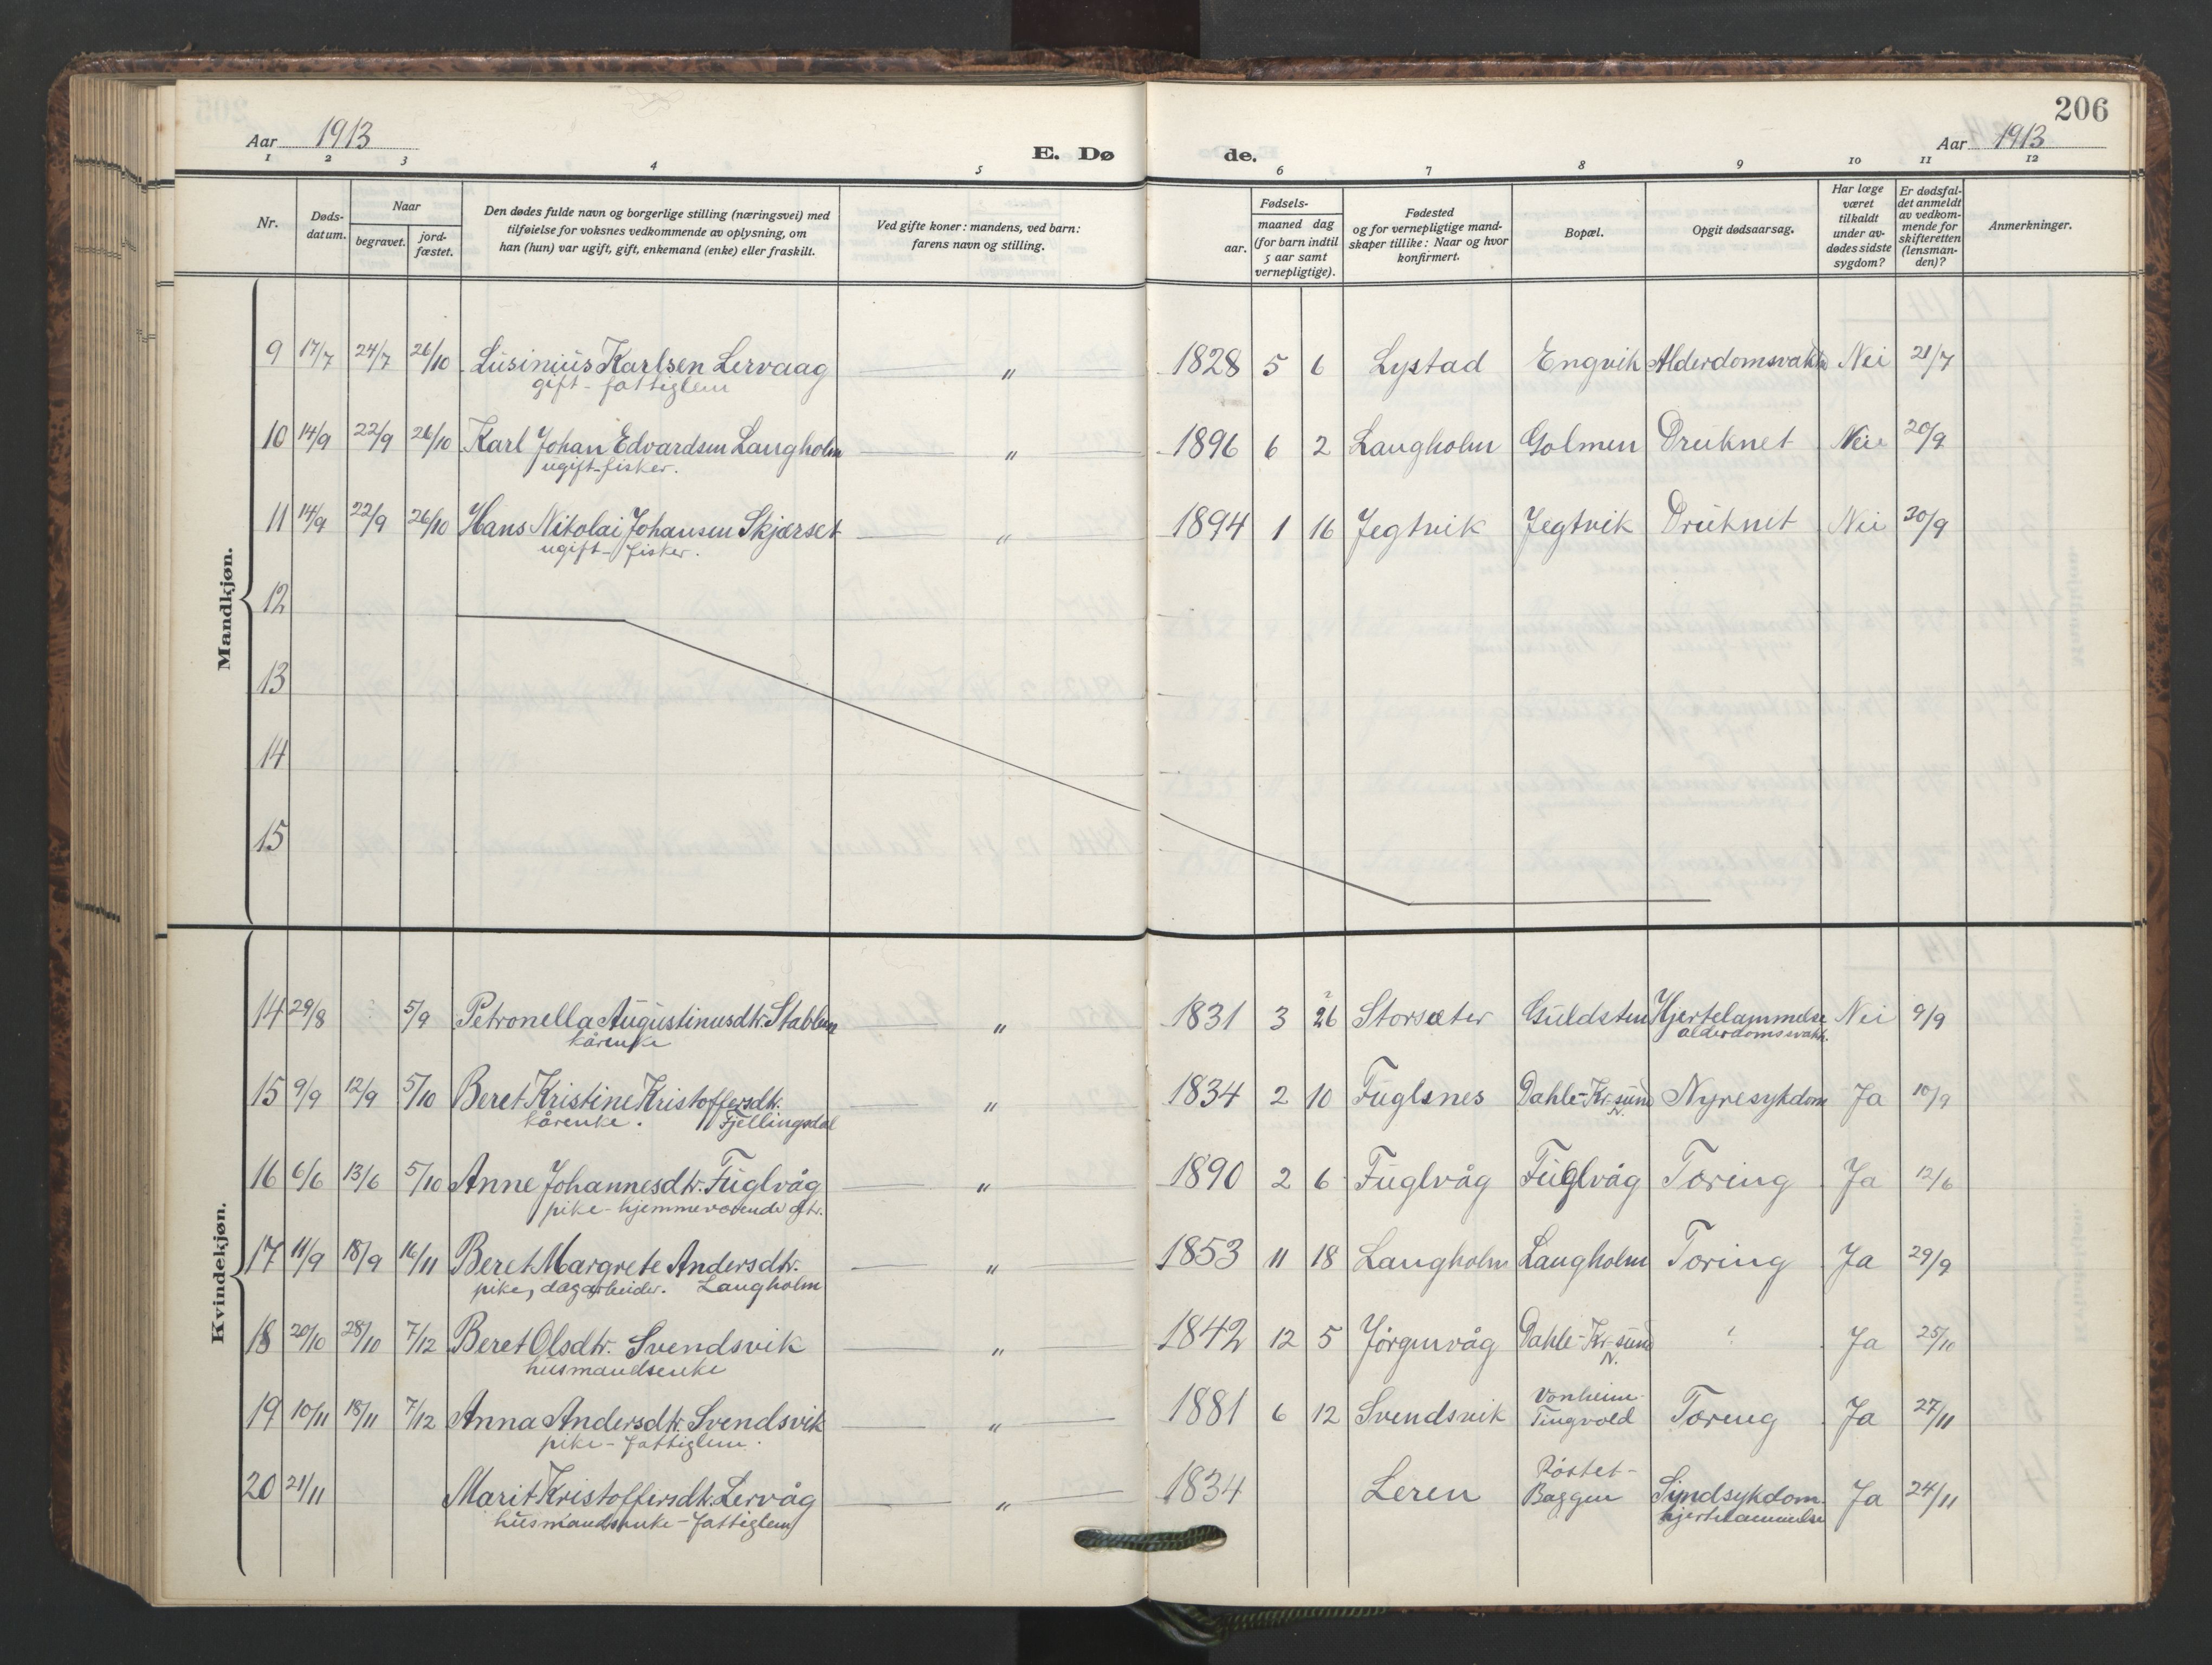 206
Aar 1913
E. Døde.
Aar 1913
1 2 3 4 5 6 7 8 9 10 11 12
Nr.
Døds-datum.
Naar
begravet.
jord-fæstet.
Den dødes fulde navn og borgerlige stilling (næringsvei) med
tilføielse for voksnes vedkommende av oplysning, om
han (hun) var ugift, gift, enkemand (enke) eller fraskilt.
Ved gifte koner: mandens, ved barn:
farens navn og stilling.
Fødsels-
aar.
maaned dag
(for barn indtil
5 aar samt
vernepligtige).
Fødested
og for vernepligtige mand-
skaper tillike: Naar og hvor
konfirmert.
Bopæl.
Opgit dødsaarsag.
Har læge
været
tilkaldt
under av-
dødes sidste
sygdom?
Er dødsfal-
det anmeldt
av vedkom-
mende for
skifteretten
(lensman-
den)?
Anmerkninger.
Mandkjøn.
9 17/7 24/7 26/10 Lusinius Karlsen Lervaag " 1828 5 6 Lystad Engvik Alderdomsvakh. Nei 21/7
gift - fattiglem
10 14/9 22/9 26/10 Karl Johan Edvardsen Langholm " 1896 6 2 Langholm Golmen Druknet Nei 20/9
ugift - fisker.
11 14/9 22/9 26/10 Hans Nikolai Johansen Skjærset " 1894 1 16 Jegtvik Jegtvik Druknet Nei 20/9
ugift - fisker.
12
13
14
15
Kvindekjøn.
14 29/8 5/9 Petronella Augustinusdtr. Stablen " 1831 3 26 Storsæter Guldsten Hjertelammelse Nei 9/9
kårenke alderdomsvakh.
15 9/9 12/9 5/10 Beret Kristine Kristoffersdtr. " 1834 2 10 Fuglsnes Dahle-Kr.sund N. Nyresykdom Ja 10/9
kårenke. Fjellingsdal
16 6/6 13/6 5/10 Anne Johannesdtr. Fuglvåg " 1890 2 6 Fuglvåg Fuglvåg Tæring Ja 12/6
pike - hjemmeværende dtr.
17 11/9 18/9 16/11 Beret Margrete Andersdtr. " 1853 11 18 Langholm Langholm Tæring Ja 29/9
pike, dagarbeider. Langholm
18 20/10 28/10 7/12 Beret Olsdtr. Svendsvik " 1842 12 5 Jörgenvåg Dahle-Kr.sund N. ? Ja 25/10
husmandsenke
19 10/11 18/11 7/12 Anna Andersdtr. Svendsvik " 1881 6 12 Svendsvik Vonheim-Tingvold Tæring Ja 27/11
pike - fattiglem.
20 21/11 Marit Kristoffersdtr. Lervåg " 1834 Leren Röstet-Baggen Sindsykdom. Ja 24/11
husmandsenke - fattiglem hjertelammelse